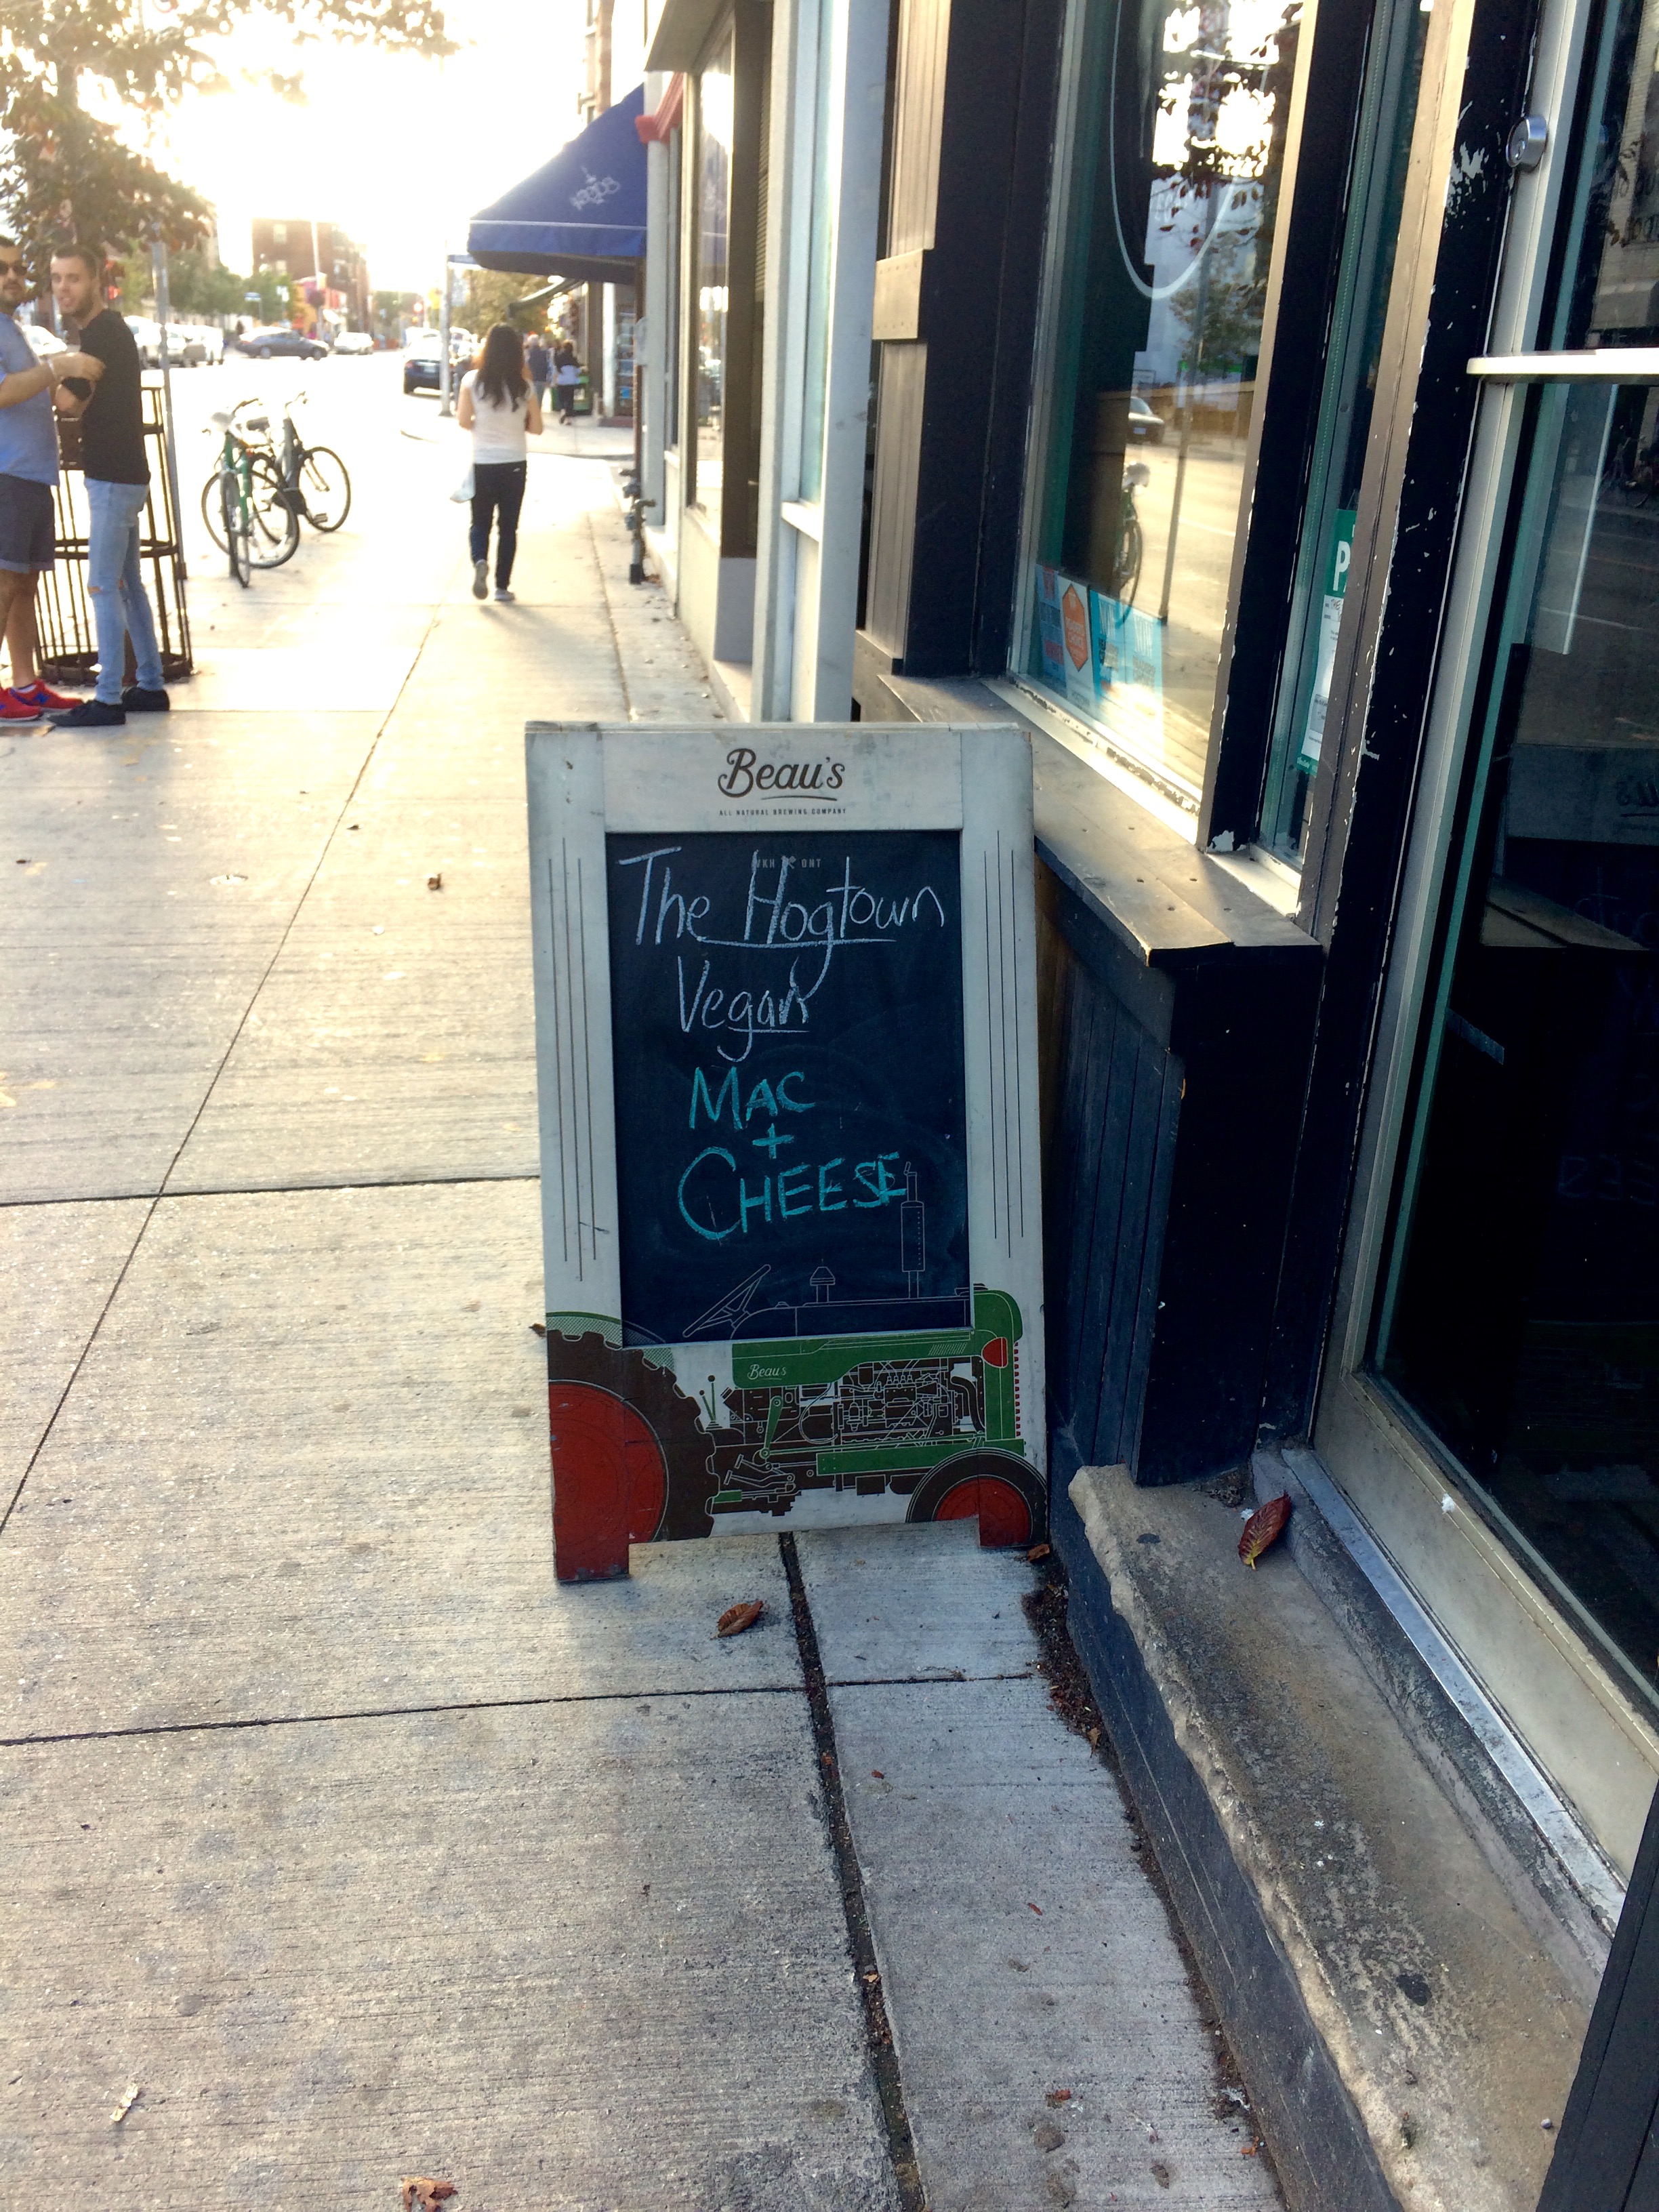 Beau's
ALL NATURAL BREWING COMPANY
VKH ONT
The Hogtown
Vegan
MAC
+
CHEESE
Beau's
P